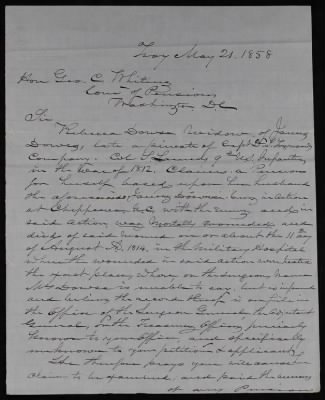 Troy May 21. 1858
Hon Geo. C. Whiting
Com^r of Pensions
Washington DC
Sir
Rebecca Dowse widow of James
Dowse, late a private of Capt
Company. Col 9th U.S. Infantry
in the War of 1812. Claims a Pension
for herself based upon her husband
the aforesaid James Dowse being in action
at Chippewa U.C. with the Enemy and in
said action was Mortally wounded and
died of said wound on or about the 11th
of August A.D. 1814. in the Military Hospital
where the wounded in said action were treated
the exact place, where or the Surgeons Name
Mrs Dowse is unable to say. but is informed
and believes the record thereof is on file in
the Office of the Surgeon General, the Adjutant
General, or the Treasury Office, precisely
known to your office, and specifically
unknown to your petitioner & applicant
She therefore prays your
claim to be examined, and
of any Pension